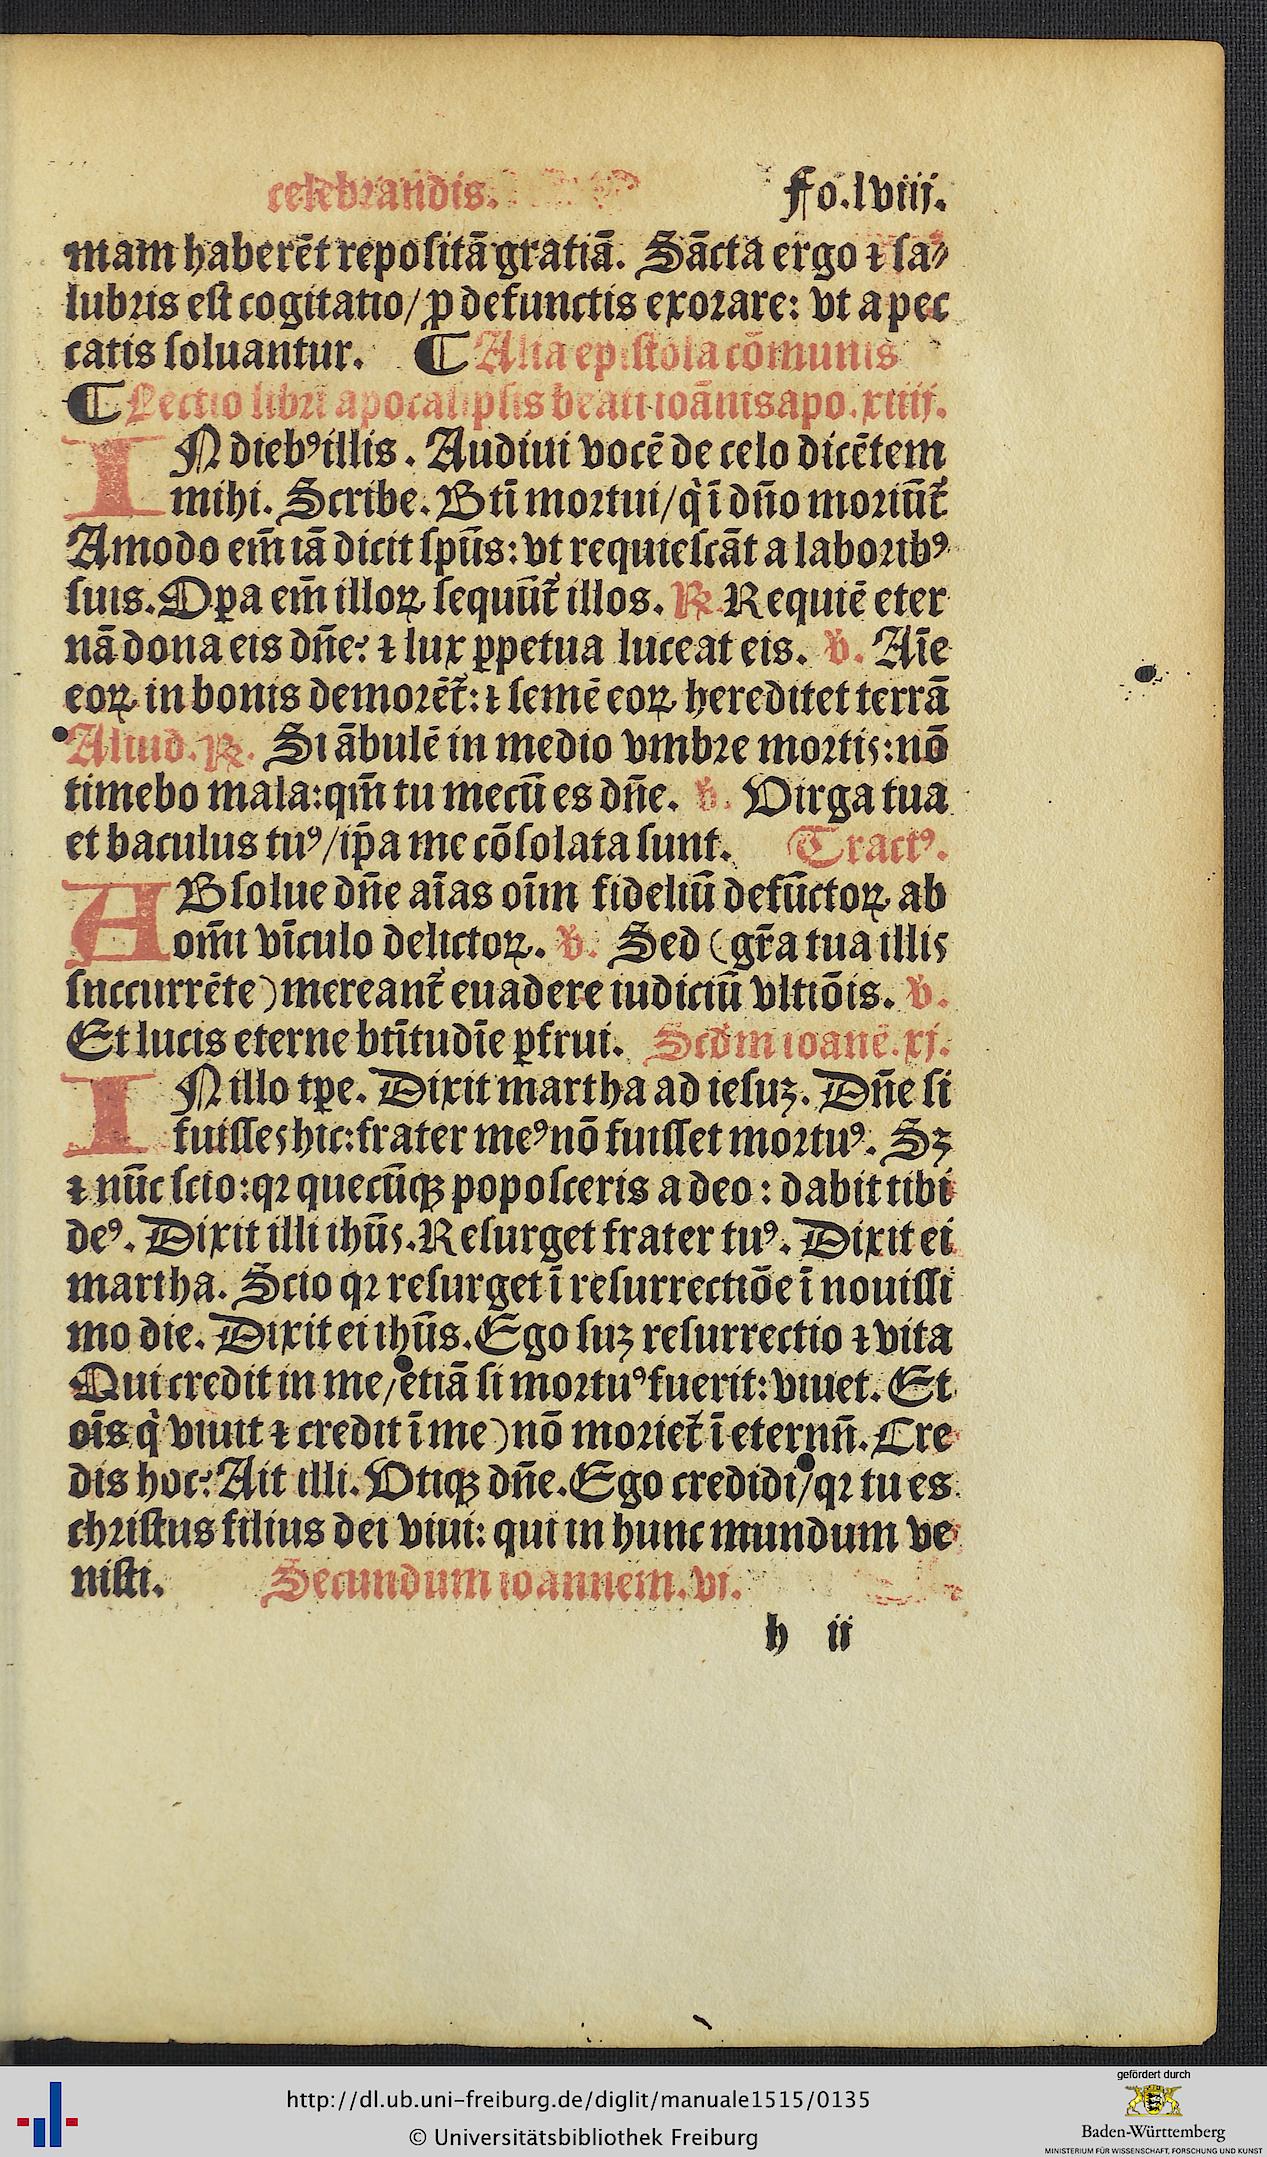 celebrandis. Fo.lviij.
mam haberēt repositā gratiā. Sācta ergo ⁊ sa⸗
lubris est cogitatio/ ꝓ defunctis exorare: vt a pec
catis soluantur. ¶ Alia epistola cōmunis
¶ Lectio libri apocalipsis beati ioānis apo. xiiij.
IN diebꝰ illis. Audiui vocē de celo dicētem
mihi. Scribe. Bti̅ mortui/ q̇ ī dn̄o moriūt᷑
Amodo em̄ iā dicit spūs: vt requiescāt a laboribꝰ
suis. Oꝑa em̄ illoꝝ sequūt᷑ illos. ℞. Requiē eter
nā dona eis dn̄e: ⁊ lux ꝑpetua luceat eis. v̇. Aīe
eoꝝ in bonis demorēt᷑: ⁊ semē eoꝝ hereditet terrā
Aliud. ℞. Si ābulē in medio vmbre mortis: nō
timebo mala: qm̄ tu mecū es dn̄e. v̇. Virga tua
et baculus tuꝰ/ ip̄a me cōsolata sunt. Tractꝰ.
ABsolue dn̄e aīas oīm fideliū defūctoꝝ ab
om̄i vīculo delictoꝝ. v̇. Sed (gr̄a tua illis
succurrēte) mereant᷑ euadere iudiciū vltiōis. v̇.
Et lucis eterne btītudīe ꝑfrui. Scdm ioanē. xj.
IN illo tꝑe. Dixit martha ad iesuꝫ. Dn̄e si
fuisses hic: frater meꝰ nō fuisset mortuꝰ. Sꝫ
⁊ nūc scio: qꝛ quecūqꝫ poposceris a deo: dabit tibi
deꝰ. Dixit illi ihūs. Resurget frater tuꝰ. Dixit ei
martha. Scio qꝛ resurget ī resurrectiōe ī nouissi
mo die. Dixit ei ihūs. Ego suꝫ resurrectio ⁊ vita
Qui credit in me/ etiā si mortuꝰ fuerit: viuet. Et
oīs q̇ viuit ⁊ credit ī me) nō moriet᷑ ī eternū. Cre
dis hoc? Ait illi. Vtiqꝫ dn̄e. Ego credidi/ qꝛ tu es
christus filius dei viui: qui in hunc mundum ve
nisti. Secundum ioannem. vi.
h ii
http://dl.ub.uni-freiburg.de/diglit/manuale1515/0135
© Universitätsbibliothek Freiburg
gefördert durch
Baden-Württemberg
MINISTERIUM FÜR WISSENSCHAFT, FORSCHUNG UND KUNST